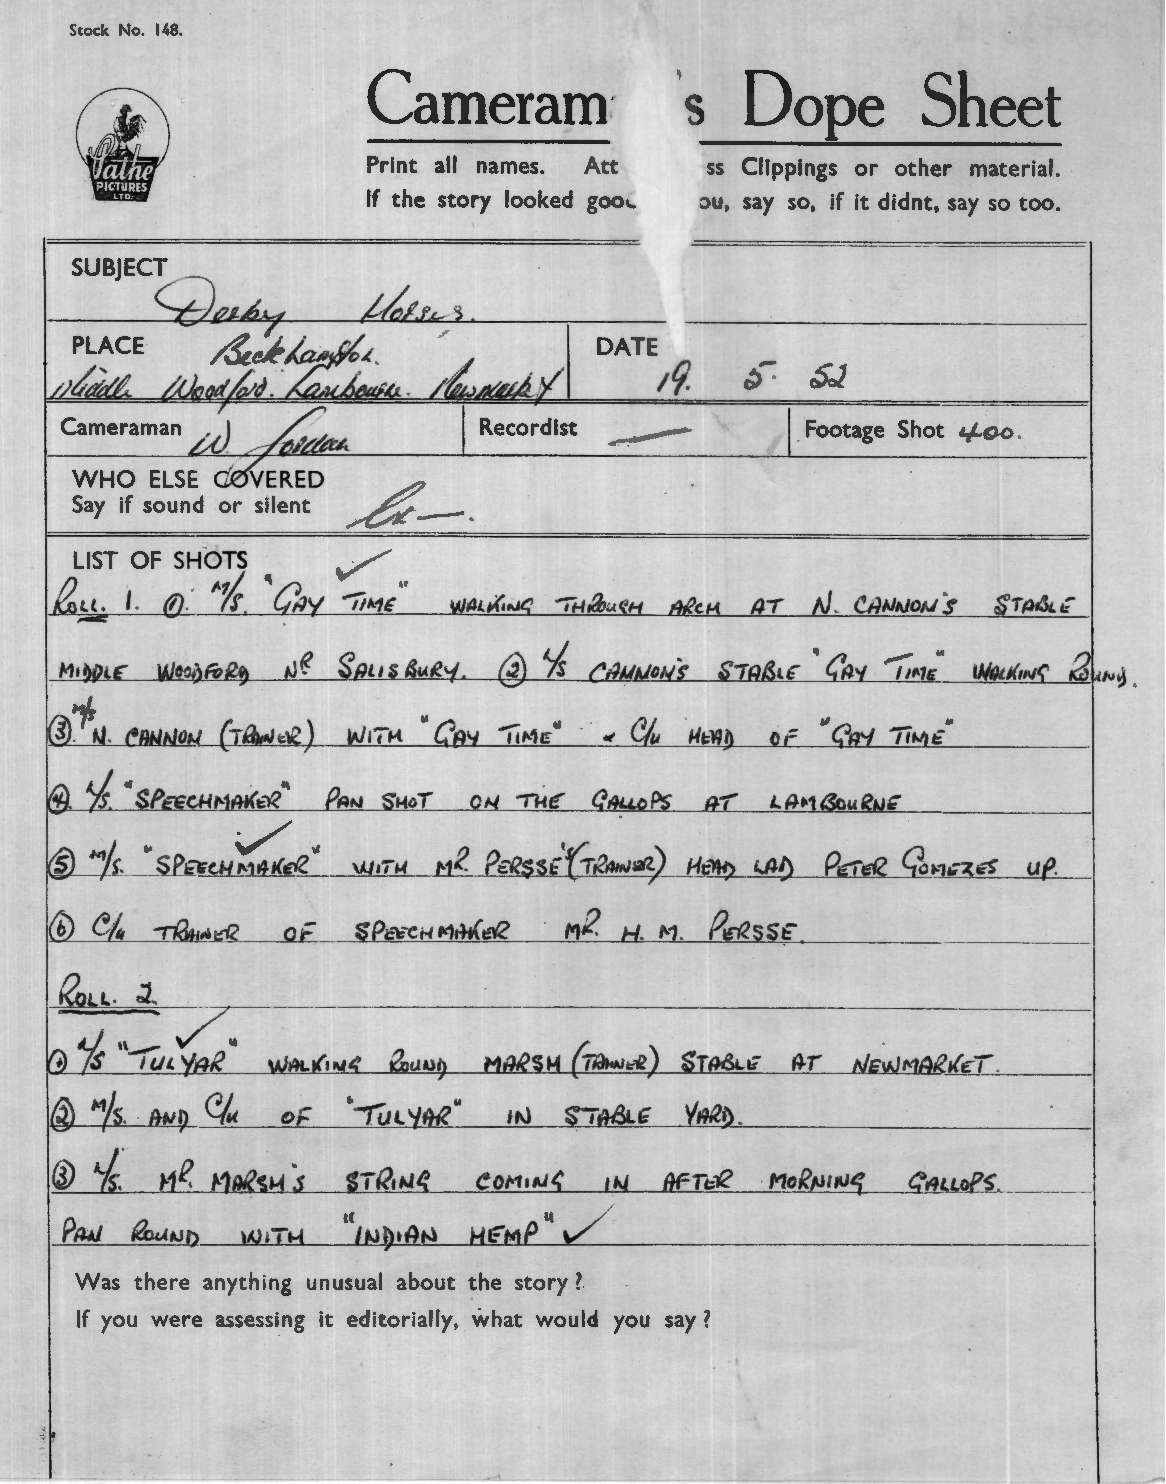 Stock No. 148.
Pathe
PICTURES
LTD.
Cameram 's Dope Sheet
Print all names. Att ss Clippings or other material.
If the story looked good ou, say so, if it didnt, say so too.
SUBJECT
Derby Horses.
PLACE
Beckhampton.
Middle Woodford. Lambourne. Newmarket
DATE
19. 5. 52
Cameraman W. Jordan
Recordist —
Footage Shot 400.
WHO ELSE COVERED
Say if sound or silent
LIST OF SHOTS
ROLL. 1. ①. M/S. "GAY TIME" WALKING THROUGH ARCH AT N. CANNON'S STABLE
MIDDLE WOODFORD NR SALISBURY. ② L/S CANNON'S STABLE "GAY TIME" WALKING ROUND.
③. M/S N. CANNON (TRAINER) WITH "GAY TIME" & C/U HEAD OF "GAY TIME"
④. L/S. "SPEECHMAKER" PAN SHOT ON THE GALLOPS AT LAMBOURNE
⑤ M/S. "SPEECHMAKER" WITH MR. PERSSE'S (TRAINER) HEAD LAD PETER GOMEZES UP.
⑥ C/U TRAINER OF SPEECHMAKER MR. H. M. PERSSE.
ROLL. 2.
① L/S "TULYAR" WALKING ROUND MARSH (TAINER) STABLE AT NEWMARKET.
② M/S. AND C/U OF "TULYAR" IN STABLE YARD.
③ L/S. MR. MARSH'S STRING COMING IN AFTER MORNING GALLOPS.
PAN ROUND WITH "INDIAN HEMP" ✓
Was there anything unusual about the story?
If you were assessing it editorially, what would you say?